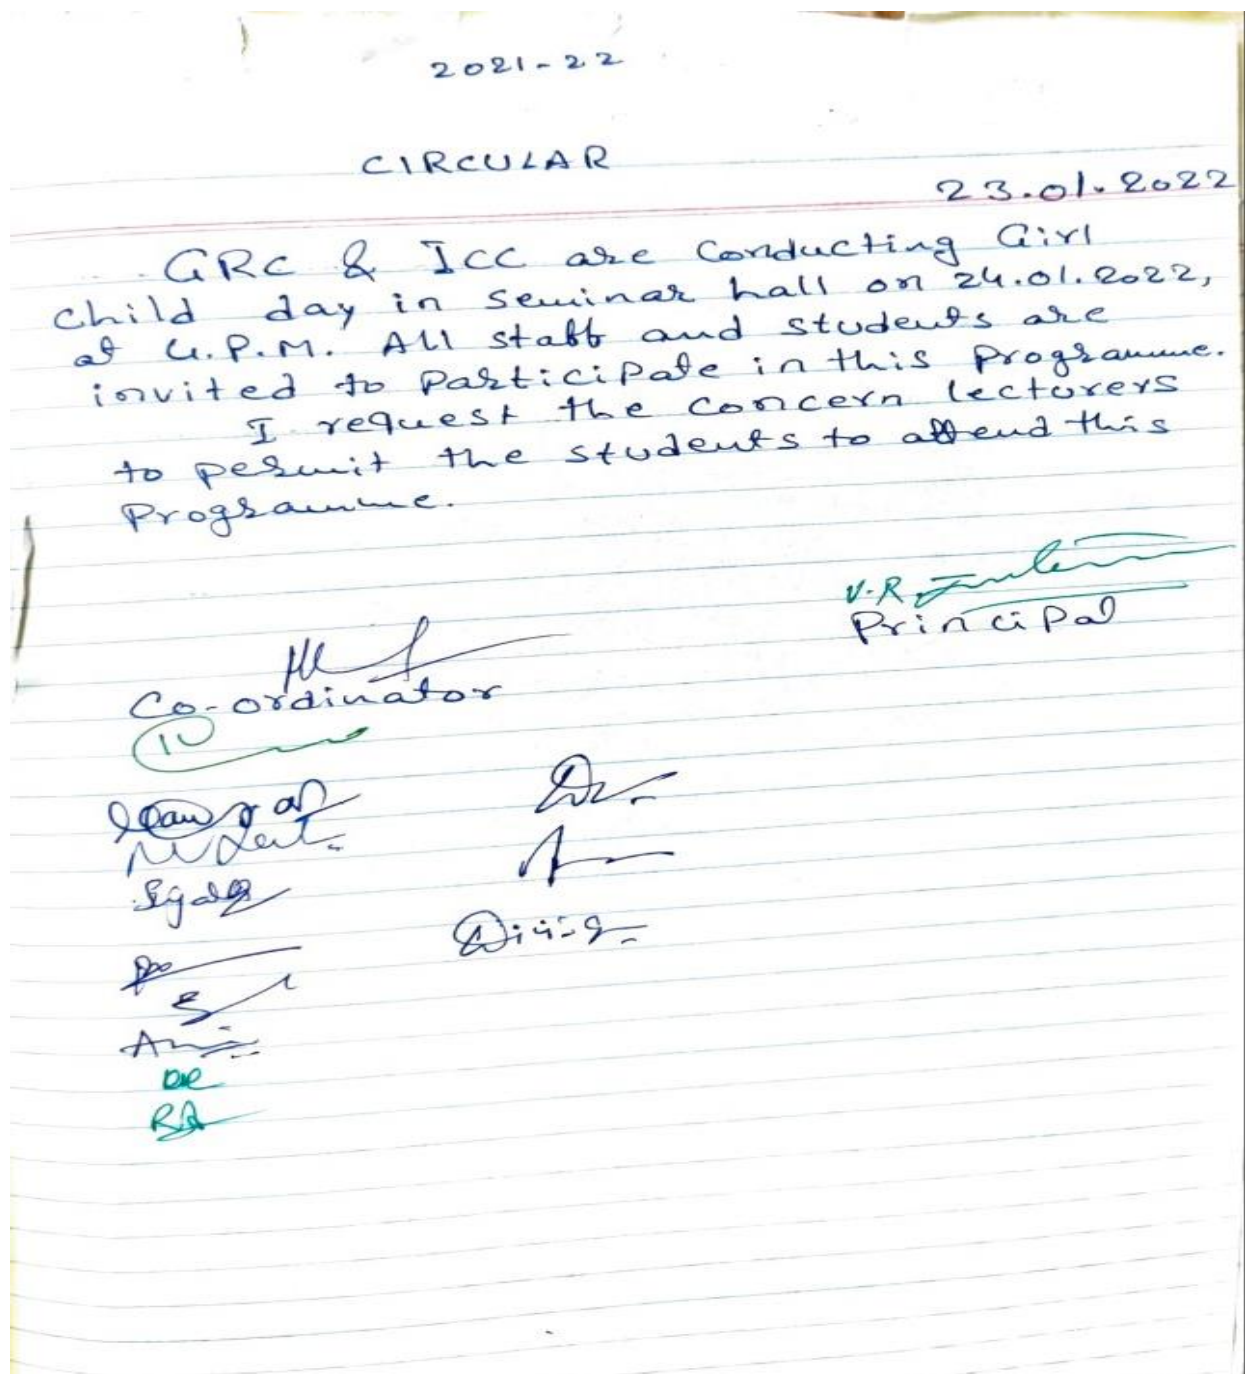 2021-22
CIRCULAR
23.01.2022
GRC & ICC are Conducting Girl
Child day in Seminar hall on 24.01.2022,
at 4.P.M. All staff and students are
invited to Participate in this Programme.
I request the concern lecturers
to permit the students to attend this
Programme.
V.R.
Principal
Co-ordinator